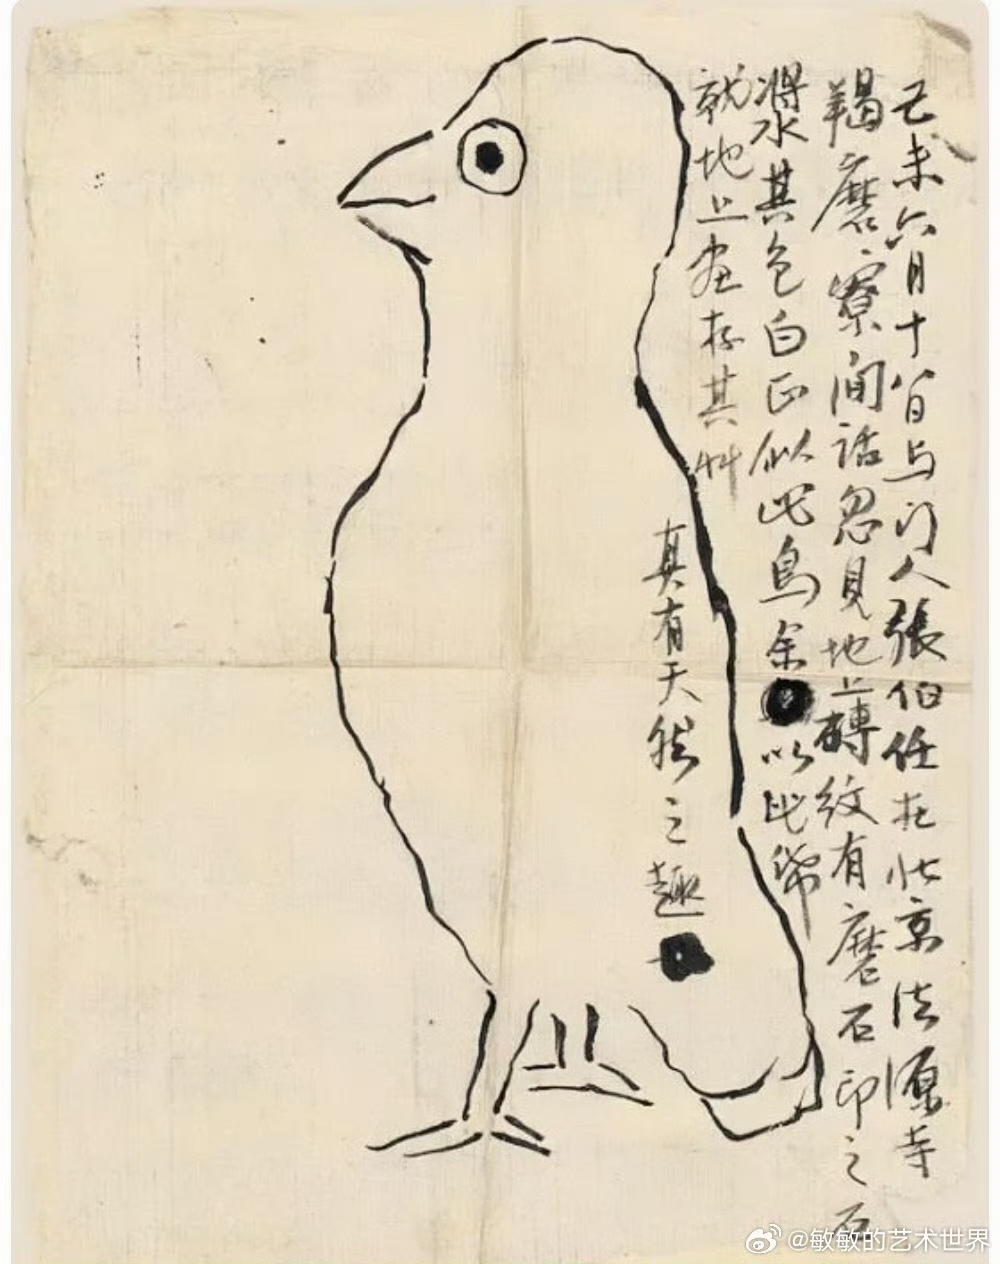 己未六月十八日与门人張伯任在北京法源寺
羯磨寮闲话忽見地上磚紋有磨石印之石
漿水其色白正似此鳥余以此紙
就地上画存其艸
真有天然之趣
@敏敏的艺术世界